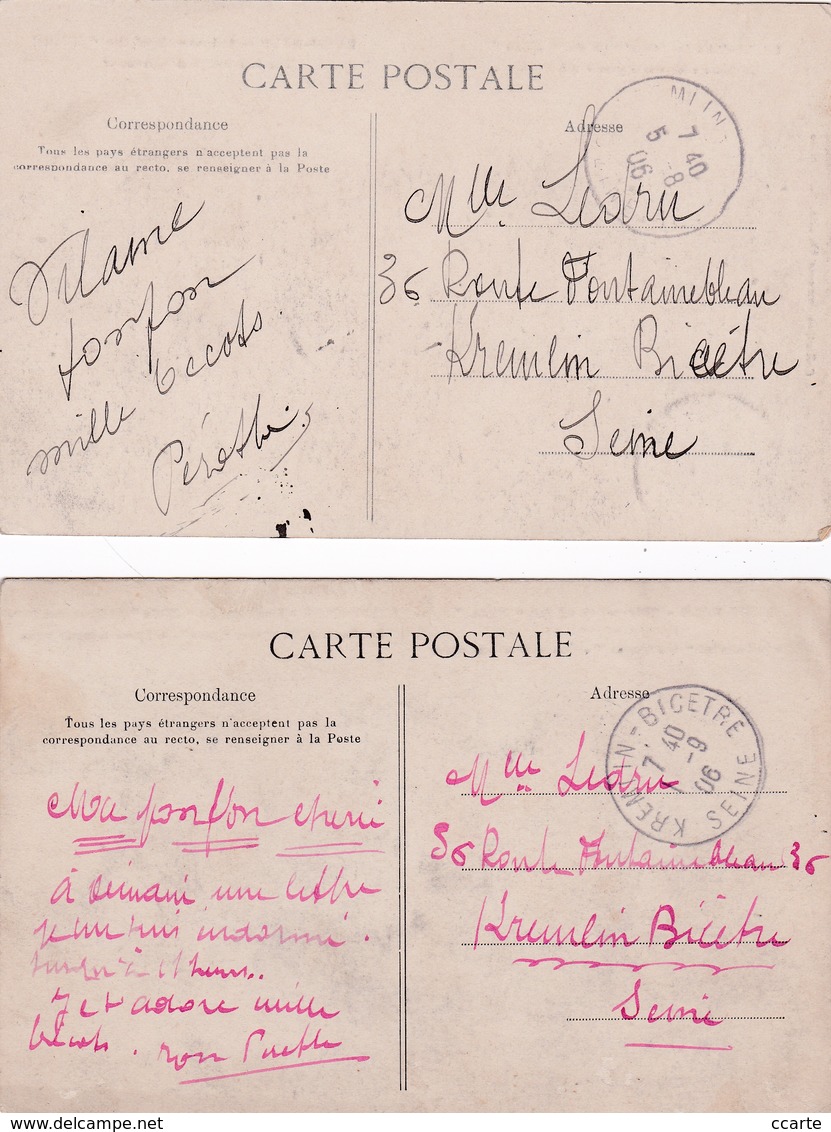 CARTE POSTALE
Correspondance
Tous les pays étrangers n'acceptent pas la
correspondance au recto, se renseigner à la Poste
Adresse
7 40
5 -8
06
Vilaine
fonfon
mille beccots
Melle Ledru
36 Route Fontainebleau
Kremlin Bicêtre
Seine
CARTE POSTALE
Correspondance
Tous les pays étrangers n'acceptent pas la
correspondance au recto, se renseigner à la Poste
Adresse
KREMLIN-BICETRE
7 40
-9
06
SEINE
Ma fonfon cherie
à demain une lettre
je me suis endormi
11 heures..
Je t'adore mille
becots.
Melle Ledru
36 Route Fontainebleau 36
Kremlin Bicêtre
Seine
ccarte